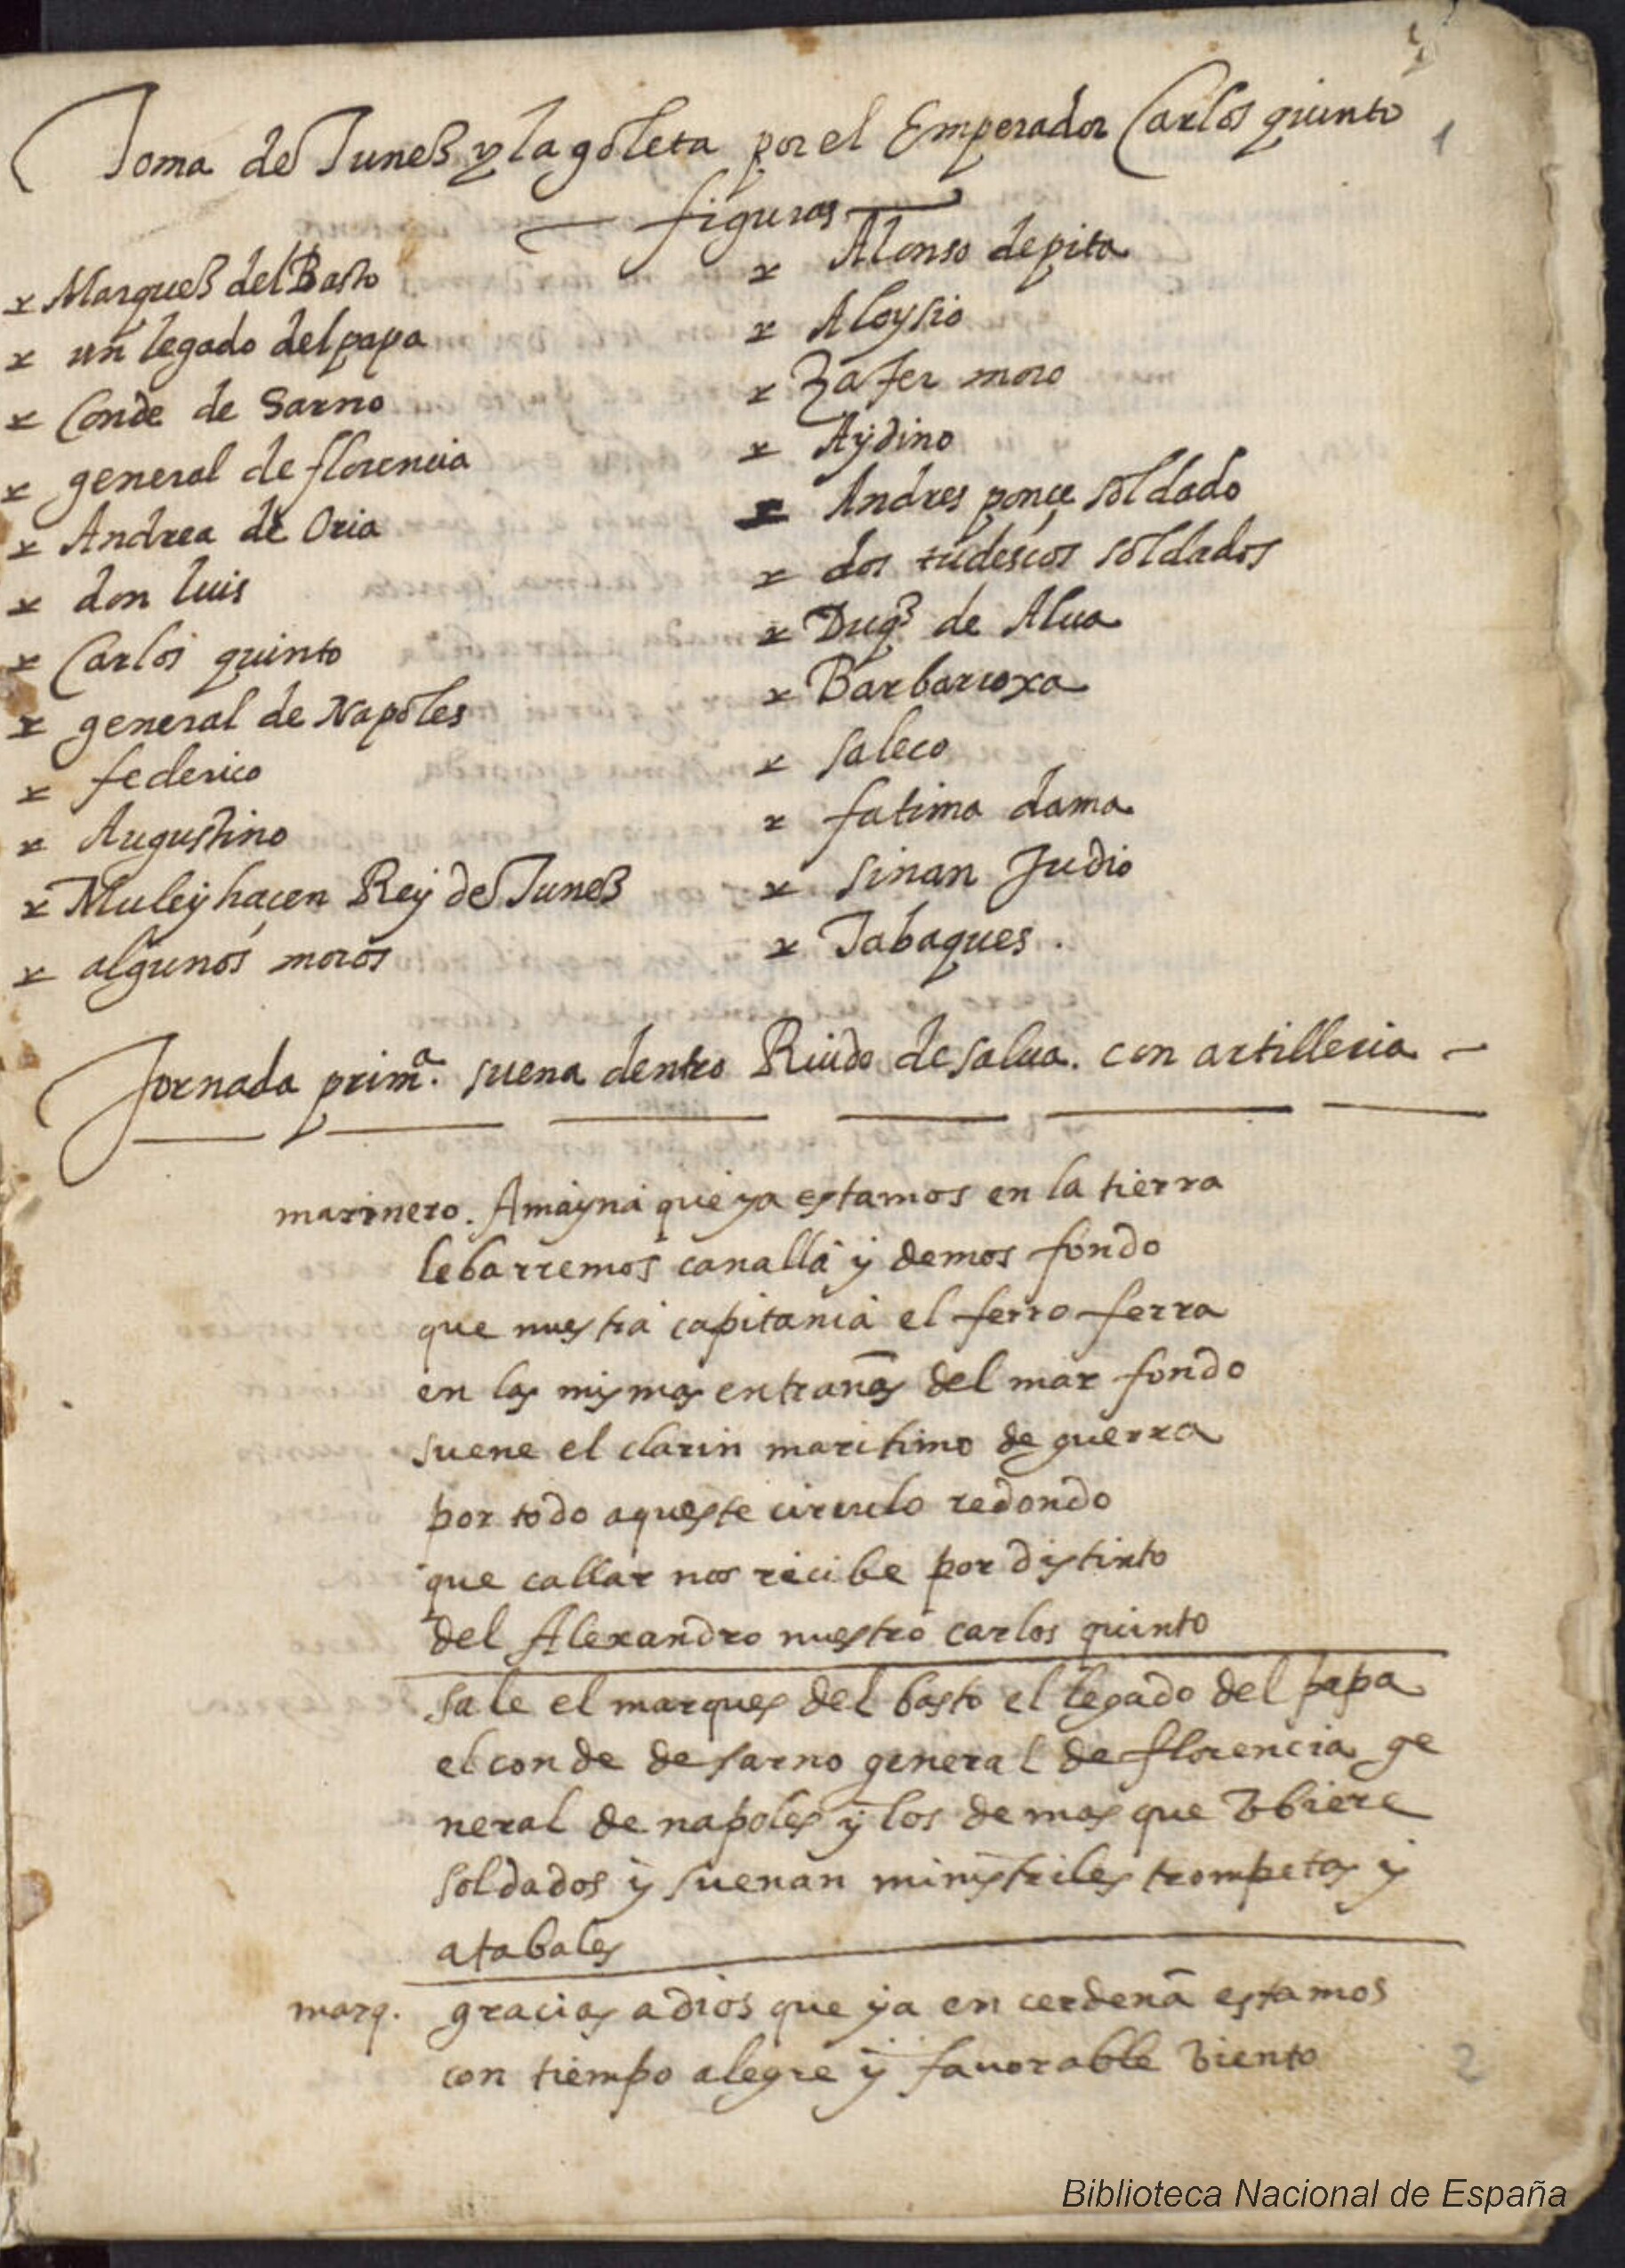 1
Toma de Tunes y la goleta por el Emperador Carlos quinto
figuras
x Marques del Basto
x un legado del papa
x Conde de Sarno
x general de florencia
x Andrea de Oria
x don luis
x Carlos quinto
x general de Napoles
x federico
x Augustino
x Muley hacen Rey de Tunes
x algunos moros
x Alonso de pita
x Aloysio
x Zafer moro
x Aydino
x Andres ponçe soldado
x dos tudescos soldados
x Duq.^e de Alua
x Barbarroxa
x saleco
x fatima dama
x sinan Judio
x Tabaques.
Jornada prim.^a suena dentro Ruido de salua. con artilleria –
marinero. Amayna que ya estamos en la tierra
lebarremos canalla y demos fondo
que nuestra capitania el ferro ferra
en las mismas entrañas del mar fondo
suene el clarin maritimo de guerra
por todo aqueste circulo redondo
que callar nos recibe por distinto
del Alexandro nuestro carlos quinto
sale el marques del basto el legado del papa
el conde de sarno general de florencia ge
neral de napoles y los demas que vbiere
soldados y suenan ministriles trompetas y
atabales
marq. gracias a dios que ya en cerdeña estamos
con tiempo alegre y fauorable viento
2
Biblioteca Nacional de España